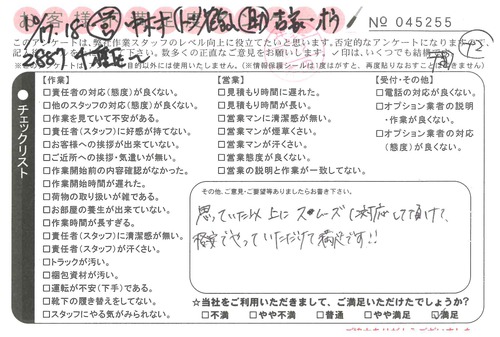 No 045255
このアンケートは、弊社作業スタッフのレベル向上に役立てたいと思います。否定的なアンケートになりますので、
チェックリスト
【作業】
□責任者の対応(態度)が良くない。
□他のスタッフの対応(態度)が良くない。
□作業を見ていて不安がある。
□責任者(スタッフ)に好感が持てない。
□お客様への挨拶が出来ていない。
□ご近所への挨拶・気遣いが無い。
□作業開始前の内容確認がなかった。
□作業開始時間が遅れた。
□荷物の取り扱いが雑である。
□お部屋の養生が出来ていない。
□作業時間が長すぎる。
□責任者(スタッフ)に清潔感が無い。
□責任者(スタッフ)が汗くさい。
□トラックが汚い。
□梱包資材が汚い。
□運転が不安(下手)である。
□靴下の履き替えをしてない。
□スタッフにやる気がみられない。
【営業】
□見積もり時間に遅れた。
□見積もり時間が長い。
□営業マンに清潔感が無い。
□営業マンが煙草くさい。
□営業マンが汗くさい。
□営業態度が良くない。
□営業の説明と作業が一致してない。
【受付・その他】
□電話の対応が良くない。
□オプション業者の説明
・作業が良くない。
□オプション業者の対応
(態度)が良くない。
その他、ご意見・ご要望等ありましたらお書き下さい。
思っていた以上にスムーズに対応して頂けて、
格安でやっていただけて満足です!!
☆当社をご利用いただきまして、ご満足いただけたでしょうか?
□不満 □やや不満 □普通 □やや満足 □満足